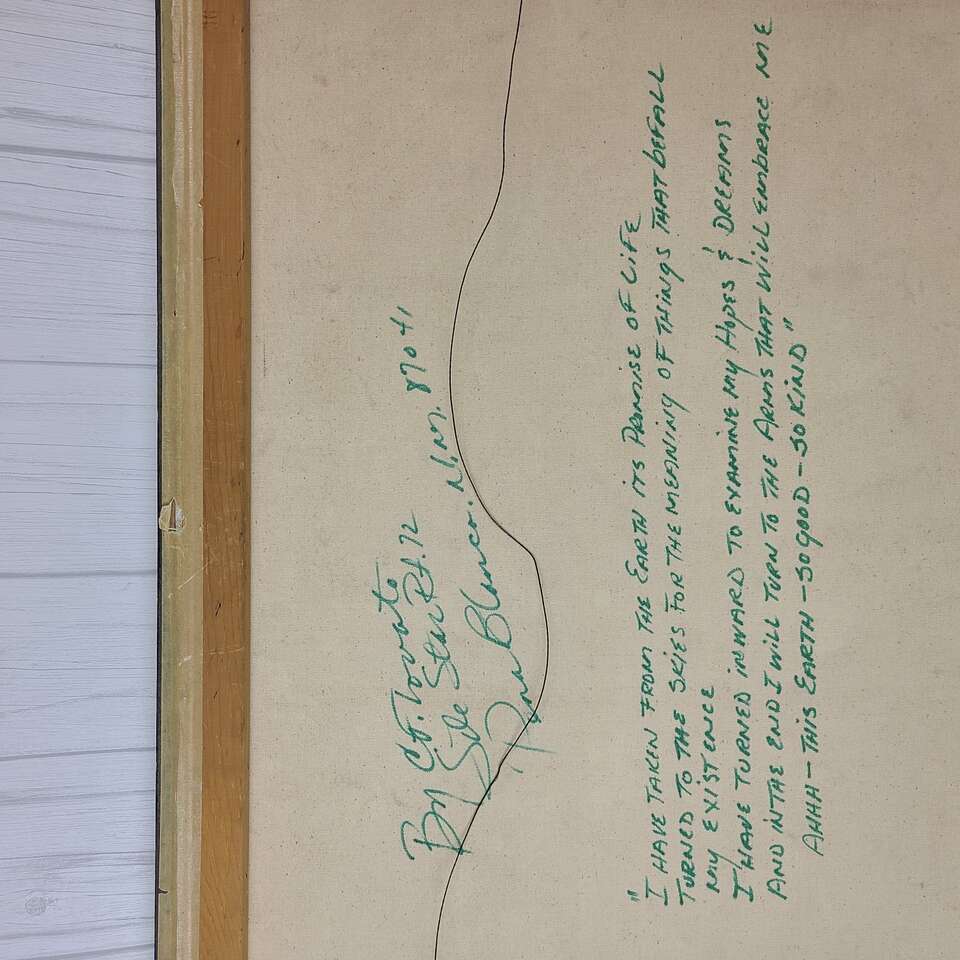 By CF. Lovato
Sile Star Rt. 12
Pena Blanca. N.M. 87041
"I HAVE TAKEN FROM THE EARTH ITS PROMISE OF LIFE
TURNED TO THE SKIES FOR THE MEANING OF THINGS THAT BEFALL
MY EXISTENCE
I HAVE TURNED INWARD TO EXAMINE MY HOPES & DREAMS
AND IN THE END I WILL TURN TO THE ARMS THAT WILL EMBRACE ME
AHHH - THIS EARTH - SO GOOD - SO KIND"